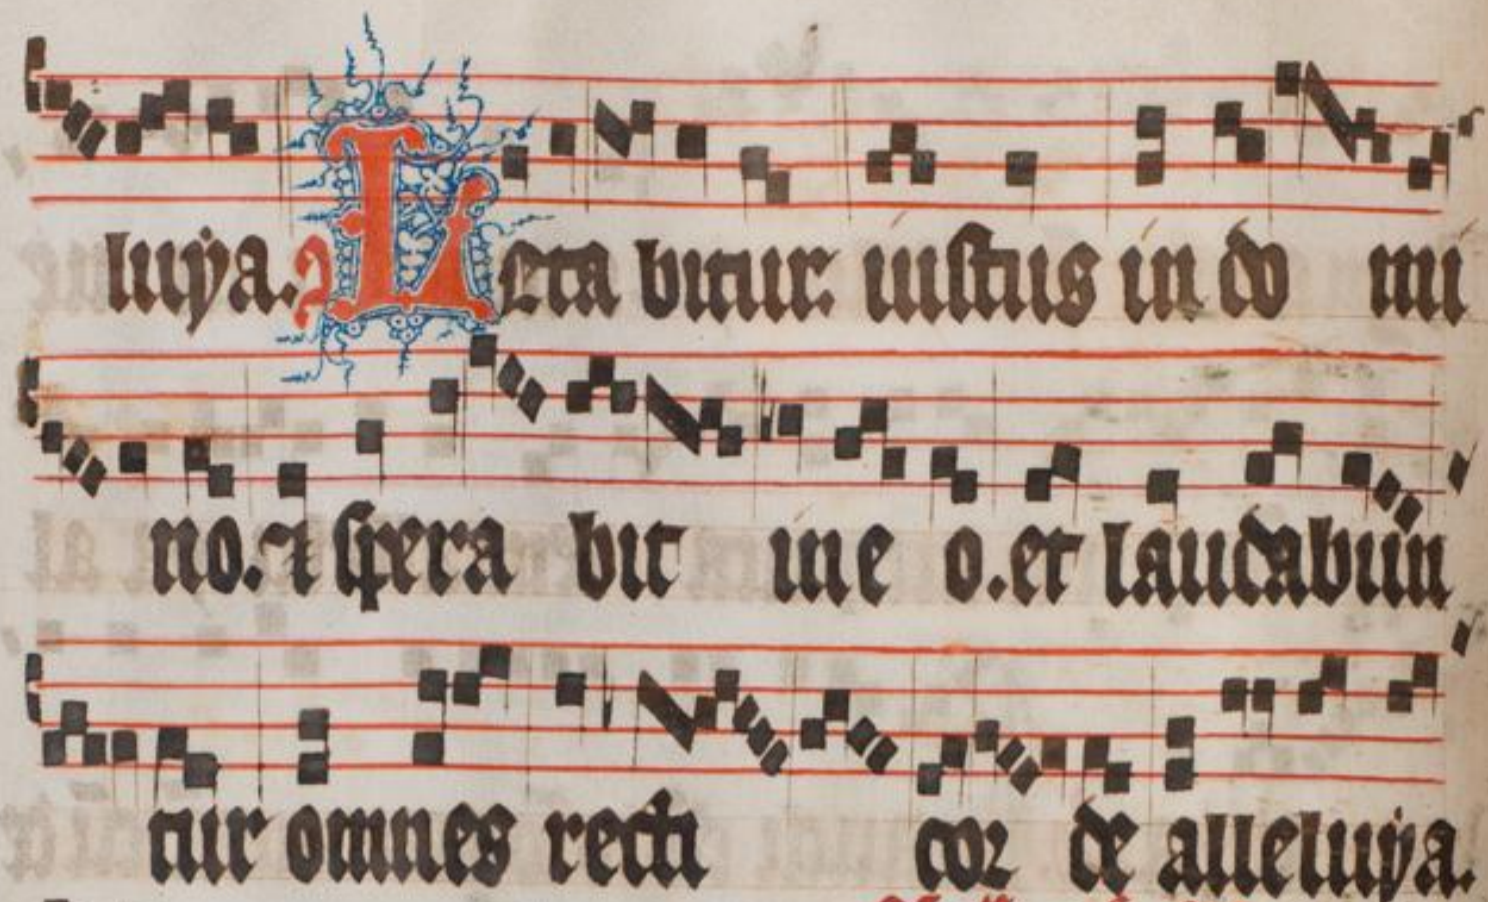 luÿa. Leta bitur. iustus in do mi
no. ⁊ spera bit in e o. et laudabun
tur omnes recti cor de alleluÿa.